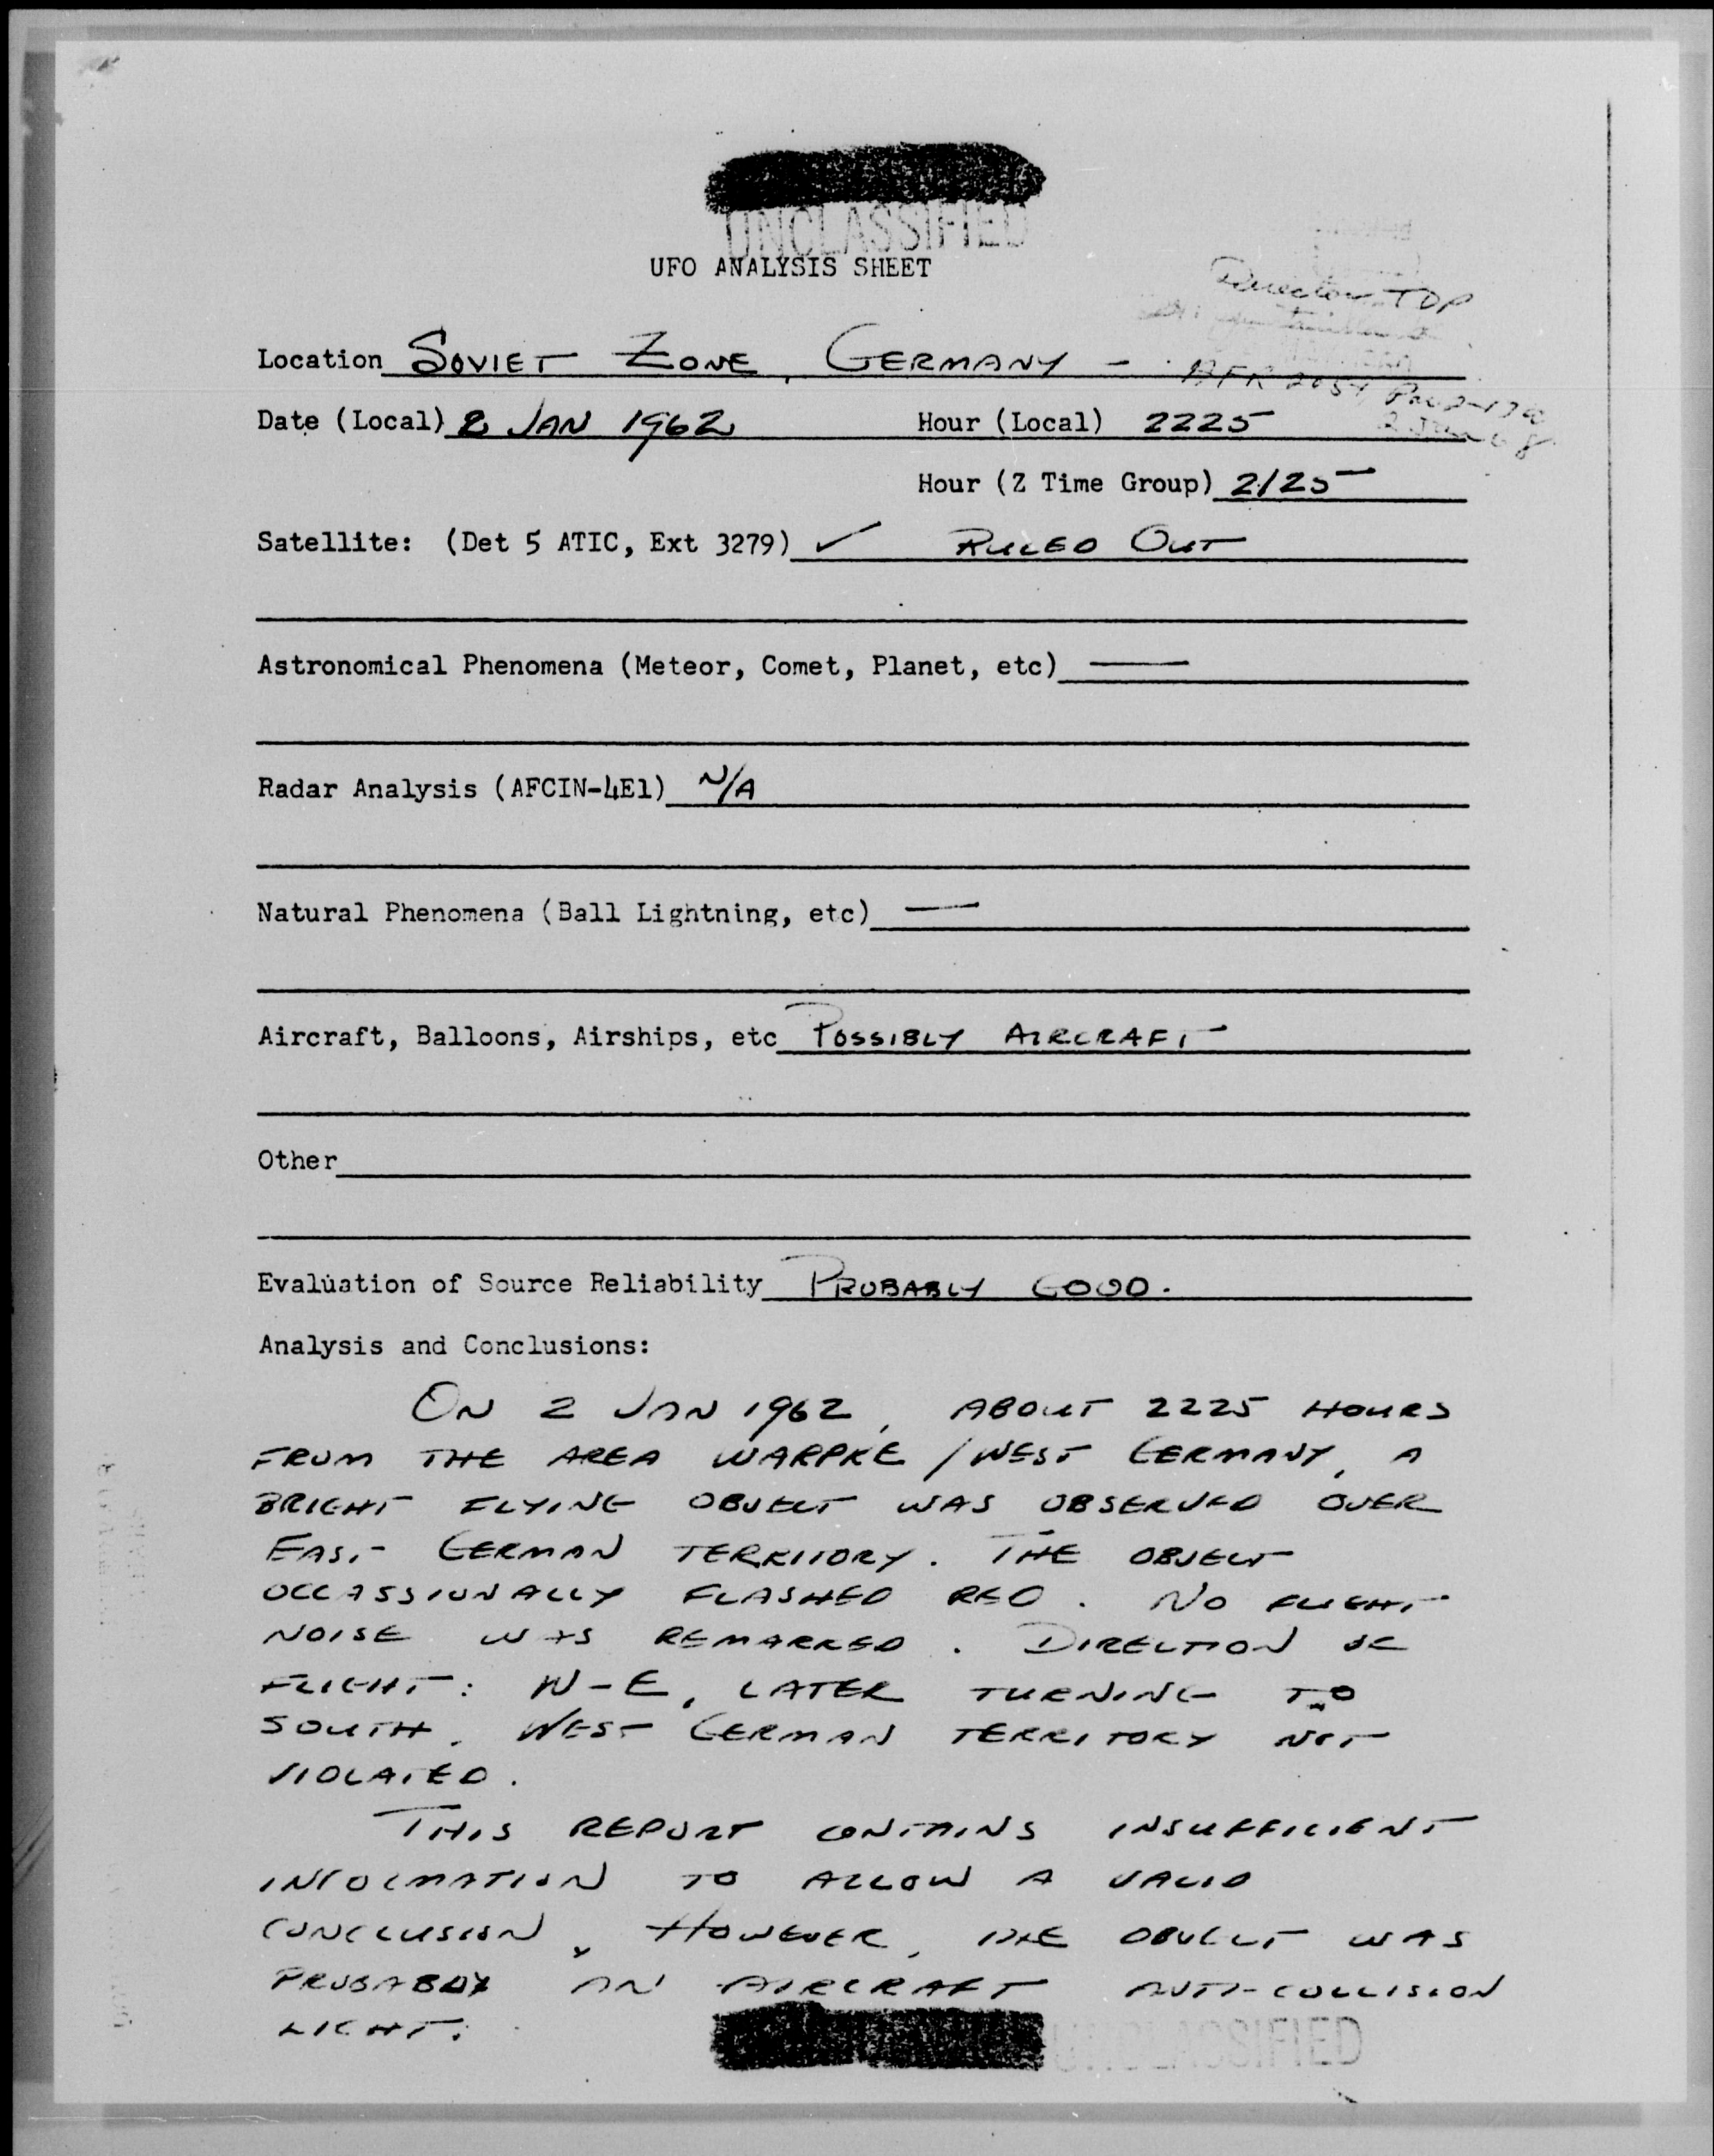 UNCLASSIFIED
UFO ANALYSIS SHEET
Director TDP
Location SOVIET ZONE, GERMANY -
AFR
Date (Local) 2 JAN 1962 Hour (Local) 2225
Hour (Z Time Group) 2125
Satellite: (Det 5 ATIC, Ext 3279) ✓ RULED OUT
Astronomical Phenomena (Meteor, Comet, Planet, etc) —
Radar Analysis (AFCIN-4E1) N/A
Natural Phenomena (Ball Lightning, etc) —
Aircraft, Balloons, Airships, etc POSSIBLY AIRCRAFT
Other
Evaluation of Source Reliability PROBABLY GOOD.
Analysis and Conclusions:
ON 2 JAN 1962, ABOUT 2225 HOURS
FROM THE AREA WARPKE / WEST GERMANY, A
BRIGHT FLYING OBJECT WAS OBSERVED OVER
EAST GERMAN TERRITORY. THE OBJECT
OCCASSIONALLY FLASHED RED. NO FLIGHT
NOISE WAS REMARKED. DIRECTION OF
FLIGHT: W-E, LATER TURNING TO
SOUTH. WEST GERMAN TERRITORY NOT
VIOLATED.
THIS REPORT CONTAINS INSUFFICIENT
INFORMATION TO ALLOW A VALID
CONCLUSION. HOWEVER, THE OBJECT WAS
PROBABLY AN AIRCRAFT ANTI-COLLISION
LIGHT.
UNCLASSIFIED